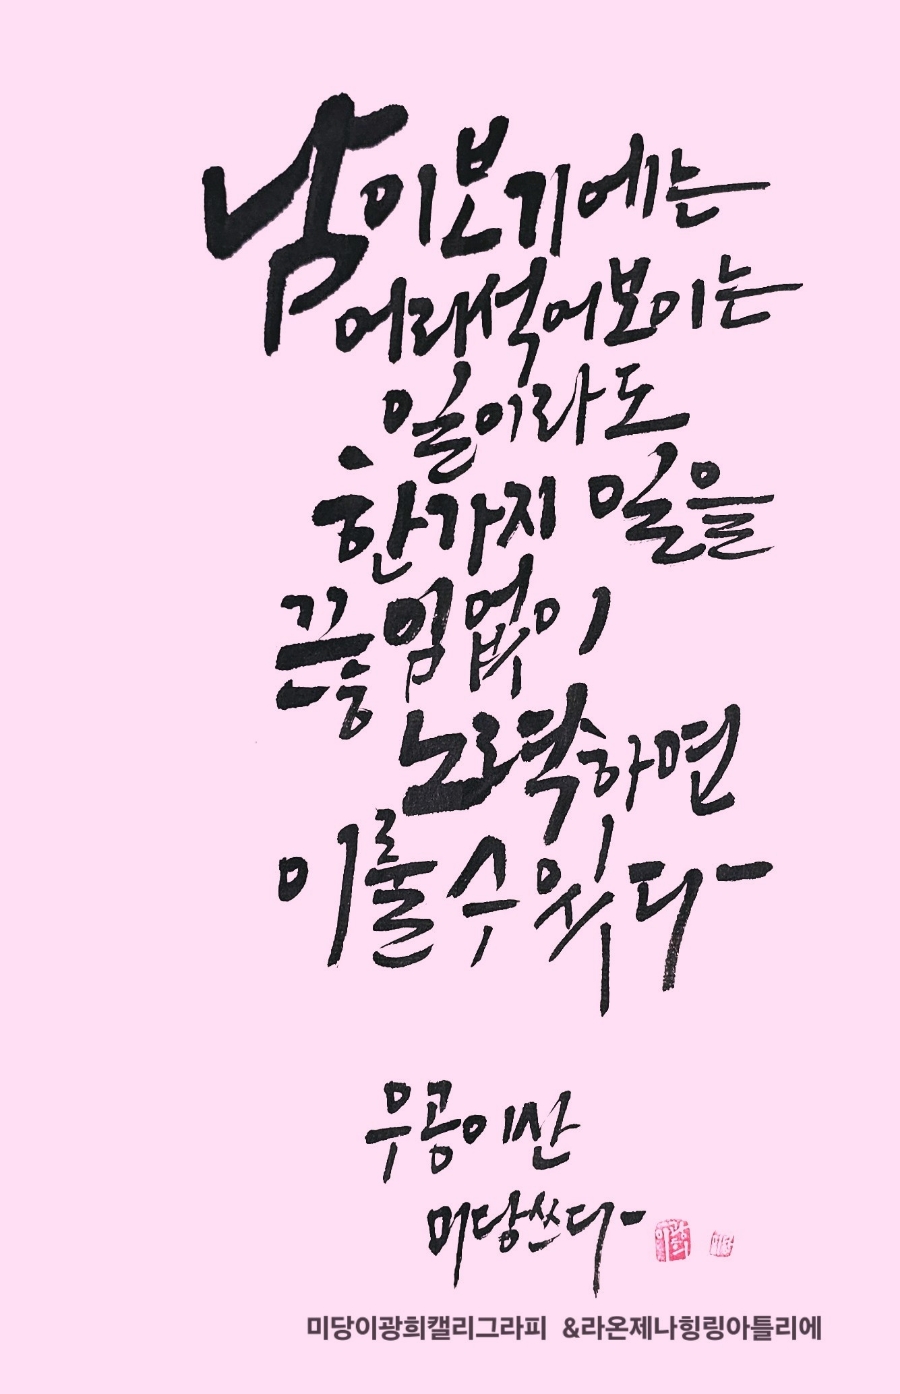 남이보기에는
어리석어보이는
일이라도
한가지 일을
끊임없이
노력하면
이룰수있다
우공이산
미당쓰다
미당이광희캘리그라피 &라온제나힝링아틀리에